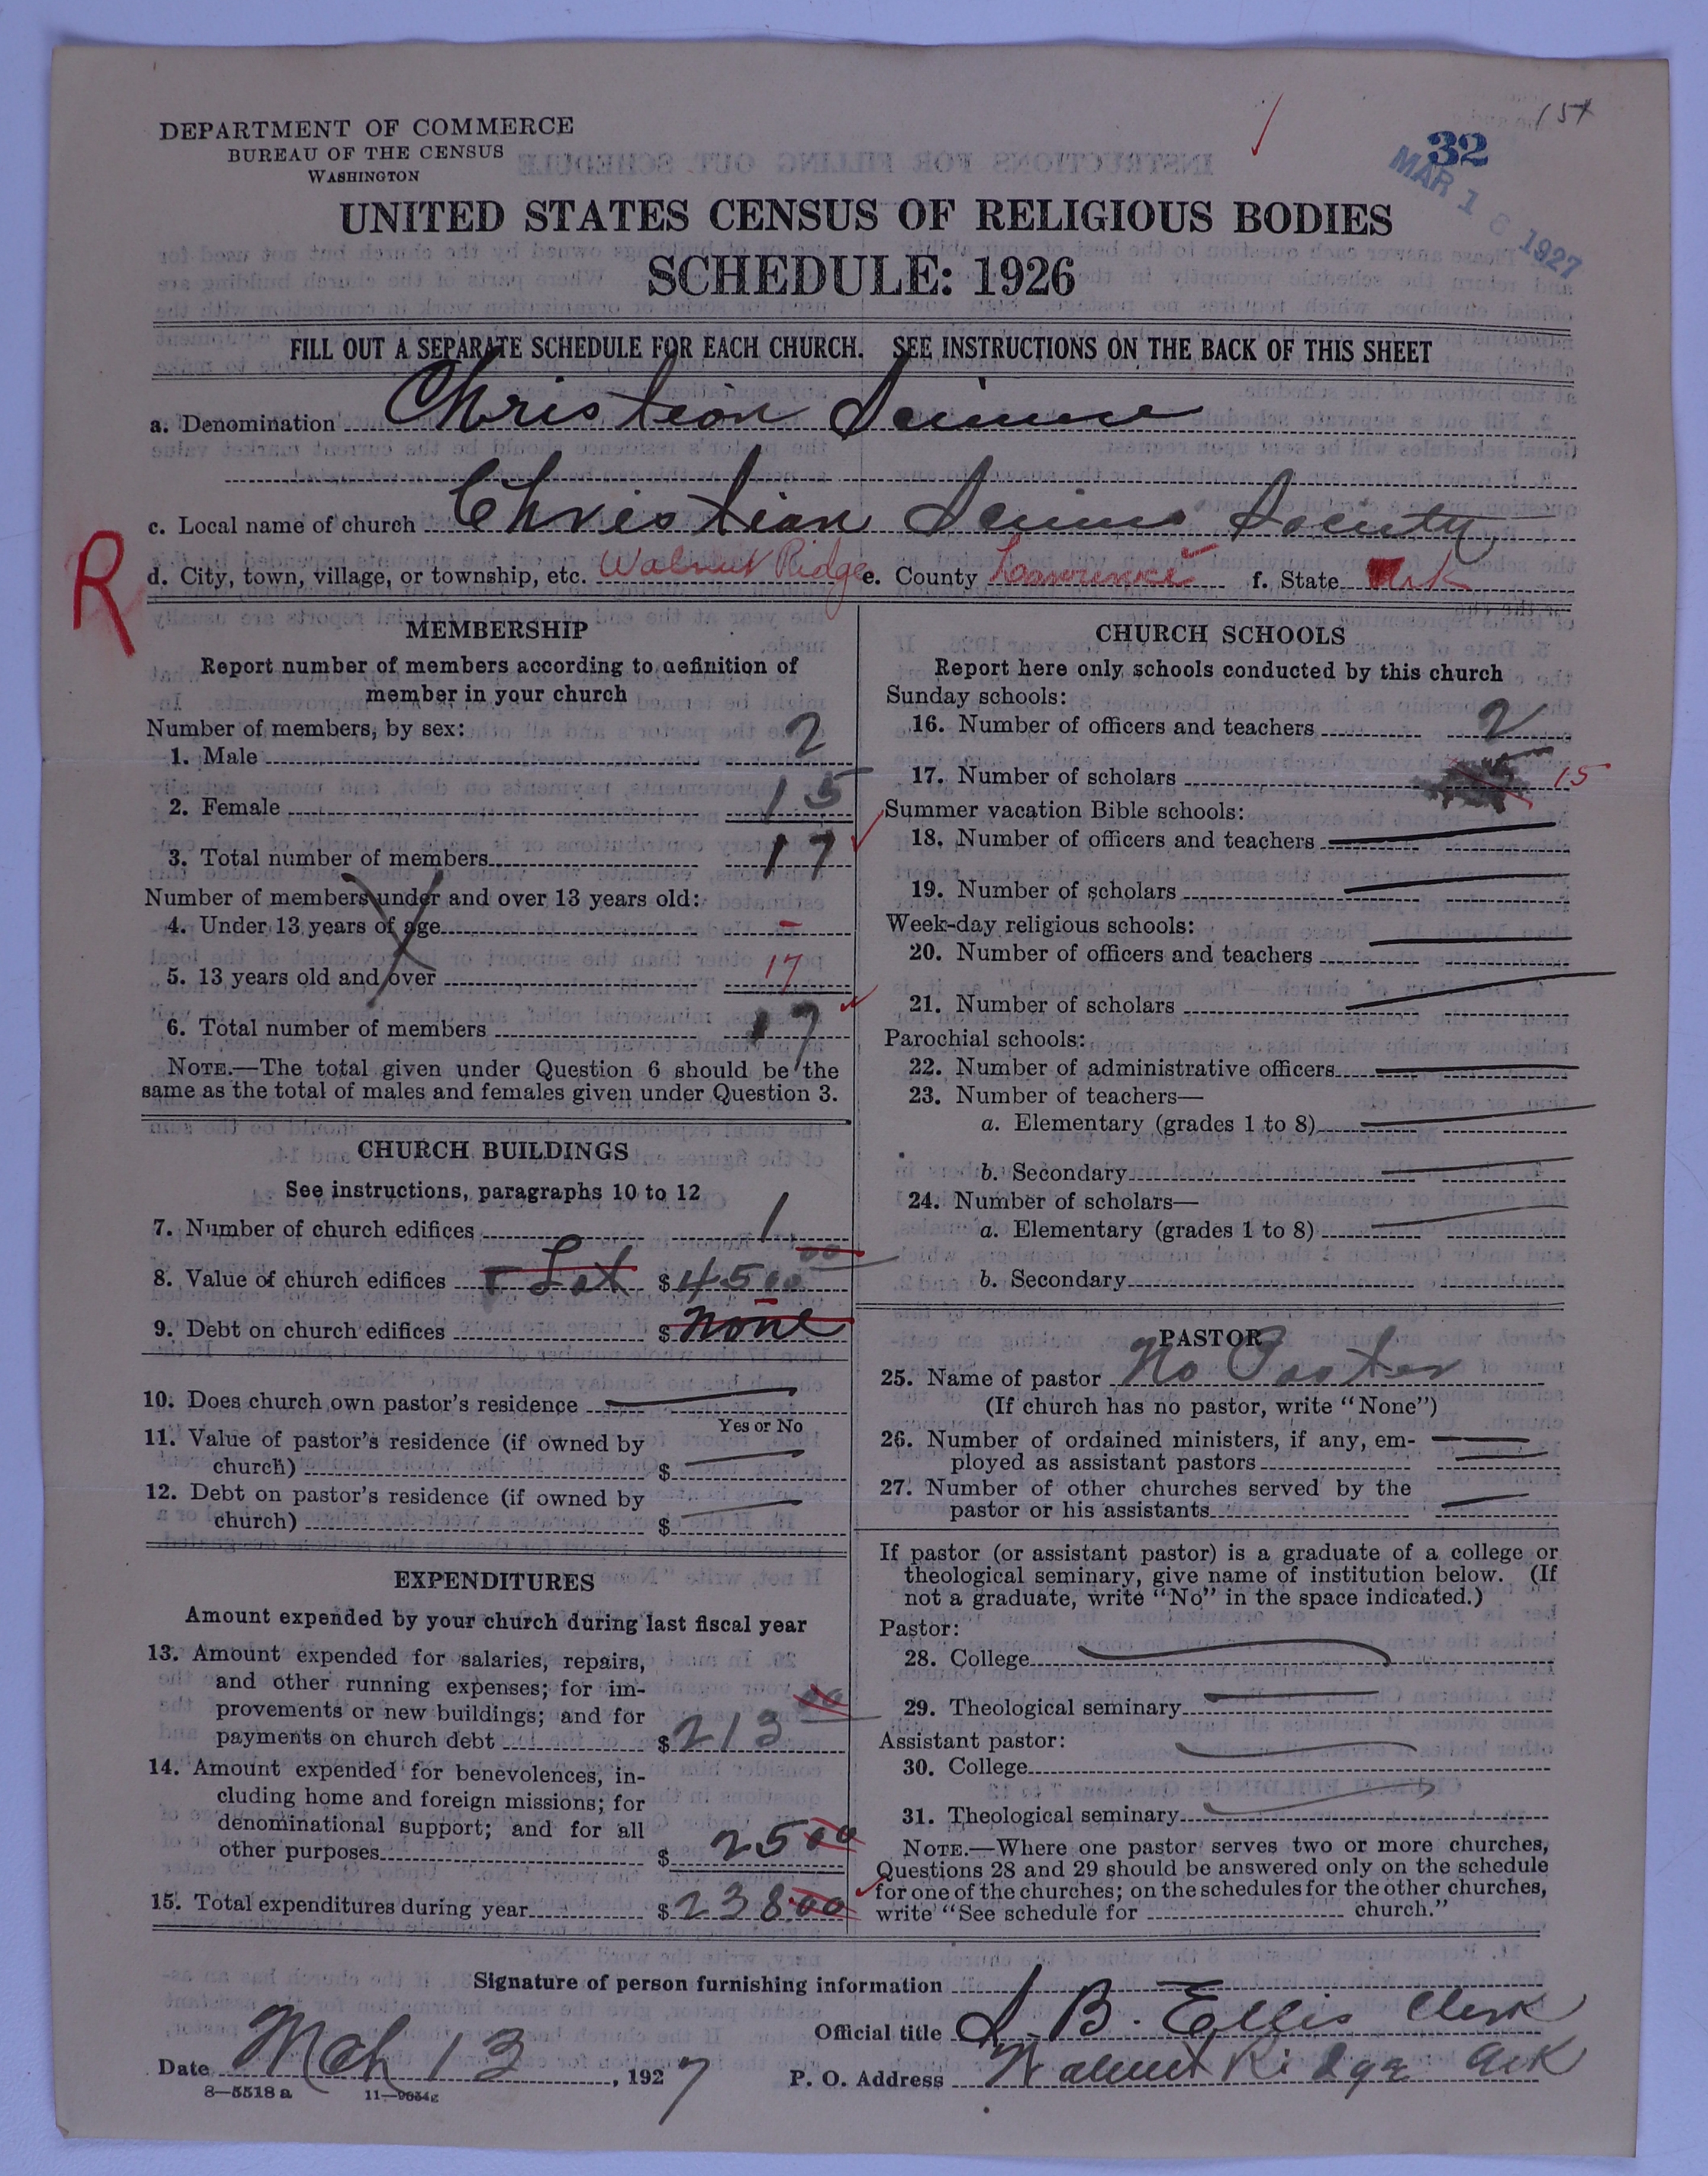 15+
32
MAR 16 1927
DEPARTMENT OF COMMERCE
BUREAU OF THE CENSUS
WASHINGTON
UNITED STATES CENSUS OF RELIGIOUS BODIES
SCHEDULE: 1926
FILL OUT A SEPARATE SCHEDULE FOR EACH CHURCH. SEE INSTRUCTIONS ON THE BACK OF THIS SHEET
a. Denomination Christian Science
c. Local name of church Christian Science Society
R
d. City, town, village, or township, etc. Walnut Ridge e. County Lawrence f. State Ark
MEMBERSHIP
Report number of members according to definition of
member in your church
Number of members, by sex:
1. Male 2
2. Female 15
3. Total number of members 17
Number of members under and over 13 years old:
4. Under 13 years of age –
5. 13 years old and over 17
6. Total number of members 17
NOTE.—The total given under Question 6 should be the
same as the total of males and females given under Question 3.
CHURCH BUILDINGS
See instructions, paragraphs 10 to 12
7. Number of church edifices 1
8. Value of church edifices + Lot $ 4500 00
9. Debt on church edifices $ none
10. Does church own pastor's residence
Yes or No
11. Value of pastor's residence (if owned by
church) $
12. Debt on pastor's residence (if owned by
church) $
EXPENDITURES
Amount expended by your church during last fiscal year
13. Amount expended for salaries, repairs,
and other running expenses; for im-
provements or new buildings; and for
payments on church debt $ 213 00
14. Amount expended for benevolences, in-
cluding home and foreign missions; for
denominational support; and for all
other purposes $ 25 00
15. Total expenditures during year $ 238.00
CHURCH SCHOOLS
Report here only schools conducted by this church
Sunday schools:
16. Number of officers and teachers 2
17. Number of scholars 15
Summer vacation Bible schools:
18. Number of officers and teachers
19. Number of scholars
Week-day religious schools:
20. Number of officers and teachers
21. Number of scholars
Parochial schools:
22. Number of administrative officers
23. Number of teachers—
a. Elementary (grades 1 to 8)
b. Secondary
24. Number of scholars—
a. Elementary (grades 1 to 8)
b. Secondary
PASTOR
25. Name of pastor No Paster
(If church has no pastor, write "None")
26. Number of ordained ministers, if any, em-
ployed as assistant pastors
27. Number of other churches served by the
pastor or his assistants
If pastor (or assistant pastor) is a graduate of a college or
theological seminary, give name of institution below. (If
not a graduate, write "No" in the space indicated.)
Pastor:
28. College
29. Theological seminary
Assistant pastor:
30. College
31. Theological seminary
NOTE.—Where one pastor serves two or more churches,
Questions 28 and 29 should be answered only on the schedule
for one of the churches; on the schedules for the other churches,
write "See schedule for church."
Signature of person furnishing information
Official title S. B. Ellis Clerk
Date Mch 13, 1927 P. O. Address Walnut Ridge Ark
8—5518 a 11—9034g